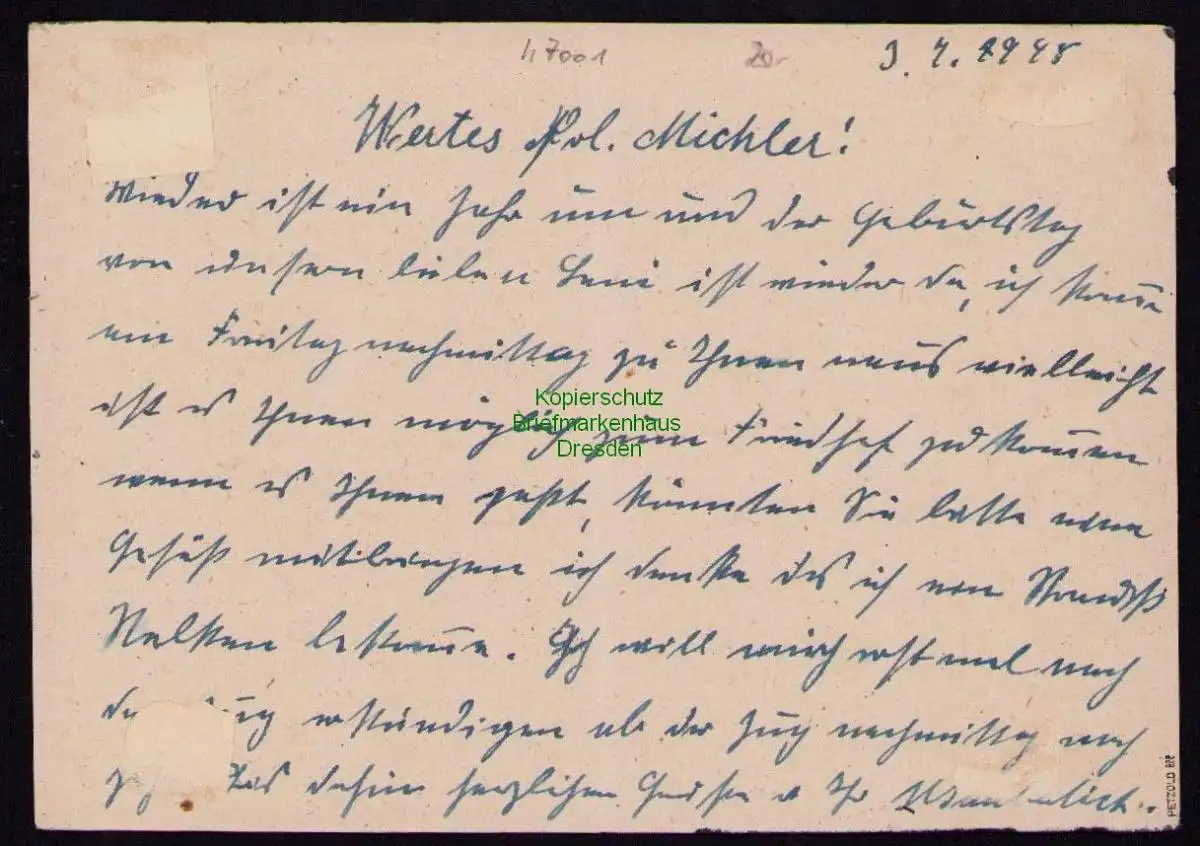 h 7001
3. 4. 1948
Wertes Frl. Michler!
Wieder ist ein Jahr um und der Geburtstag
von unsern lieben Leni ist wieder da, ich komme
am Freitag nachmittag zu Ihnen naus vielleicht
ist es Ihnen möglich zum Friedhof zu kommen
wenn es Ihnen paßt, könnten Sie bitte eine
Gefäß mitbringen ich denke das ich ein
Nelken bekomme. Ich will mich erst mal nach
erkundigen ob der Zug nachmittag noch
Bis dahin herzlichen Grüßen Ihr
Kopierschutz
Briefmarkenhaus
Dresden
PETZOLD